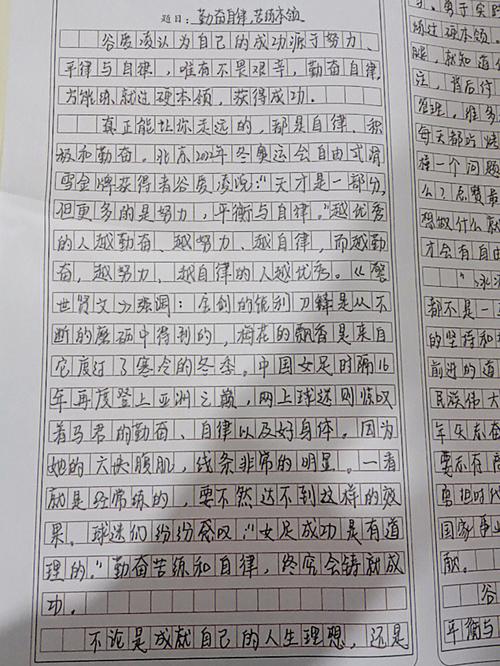 题目：勤奋自律,苦练本领
谷爱凌认为自己的成功源于努力、
平律与自律，唯有不畏艰辛，勤奋自律,
方能练就过硬本领，获得成功。
真正能让你走远的，都是自律、积
极和勤奋。北京2022年冬奥运会自由式滑
雪金牌获得者谷爱凌说:“天才是一部分,
但更多的是努力，平衡与自律。”越优秀
的人越勤奋、越努力、越自律，而越勤
奋，越努力、越自律的人越优秀。《警
世贤文》强调：金剑的锐利刀锋是从不
断的磨砺中得到的，梅花的飘香是来自
它度过了寒冷的冬季。中国女足时隔16
年再度登上亚洲之巅，网上球迷则惊叹
着马君的勤奋、自律以及好身体。因为
她的六块腹肌，线条非常的明显。一看
就是经常练的，要不然达不到这样的效
果。球迷们纷纷感叹:“女足成功是有道
理的。”勤奋苦练和自律，终究会铸就成
功。
不论是成就自己的人生理想，还是
过硬本领
就知道
注，背后付
管理。谁多
每天都吃烤
样一个问题
么？总赞最
想做什么就
才会有自由
“冰
都不是一
的坚持和
前进的道
民族伟大
年矢志奋
要亦有
担时代
国家事业
献。
谷
平衡与